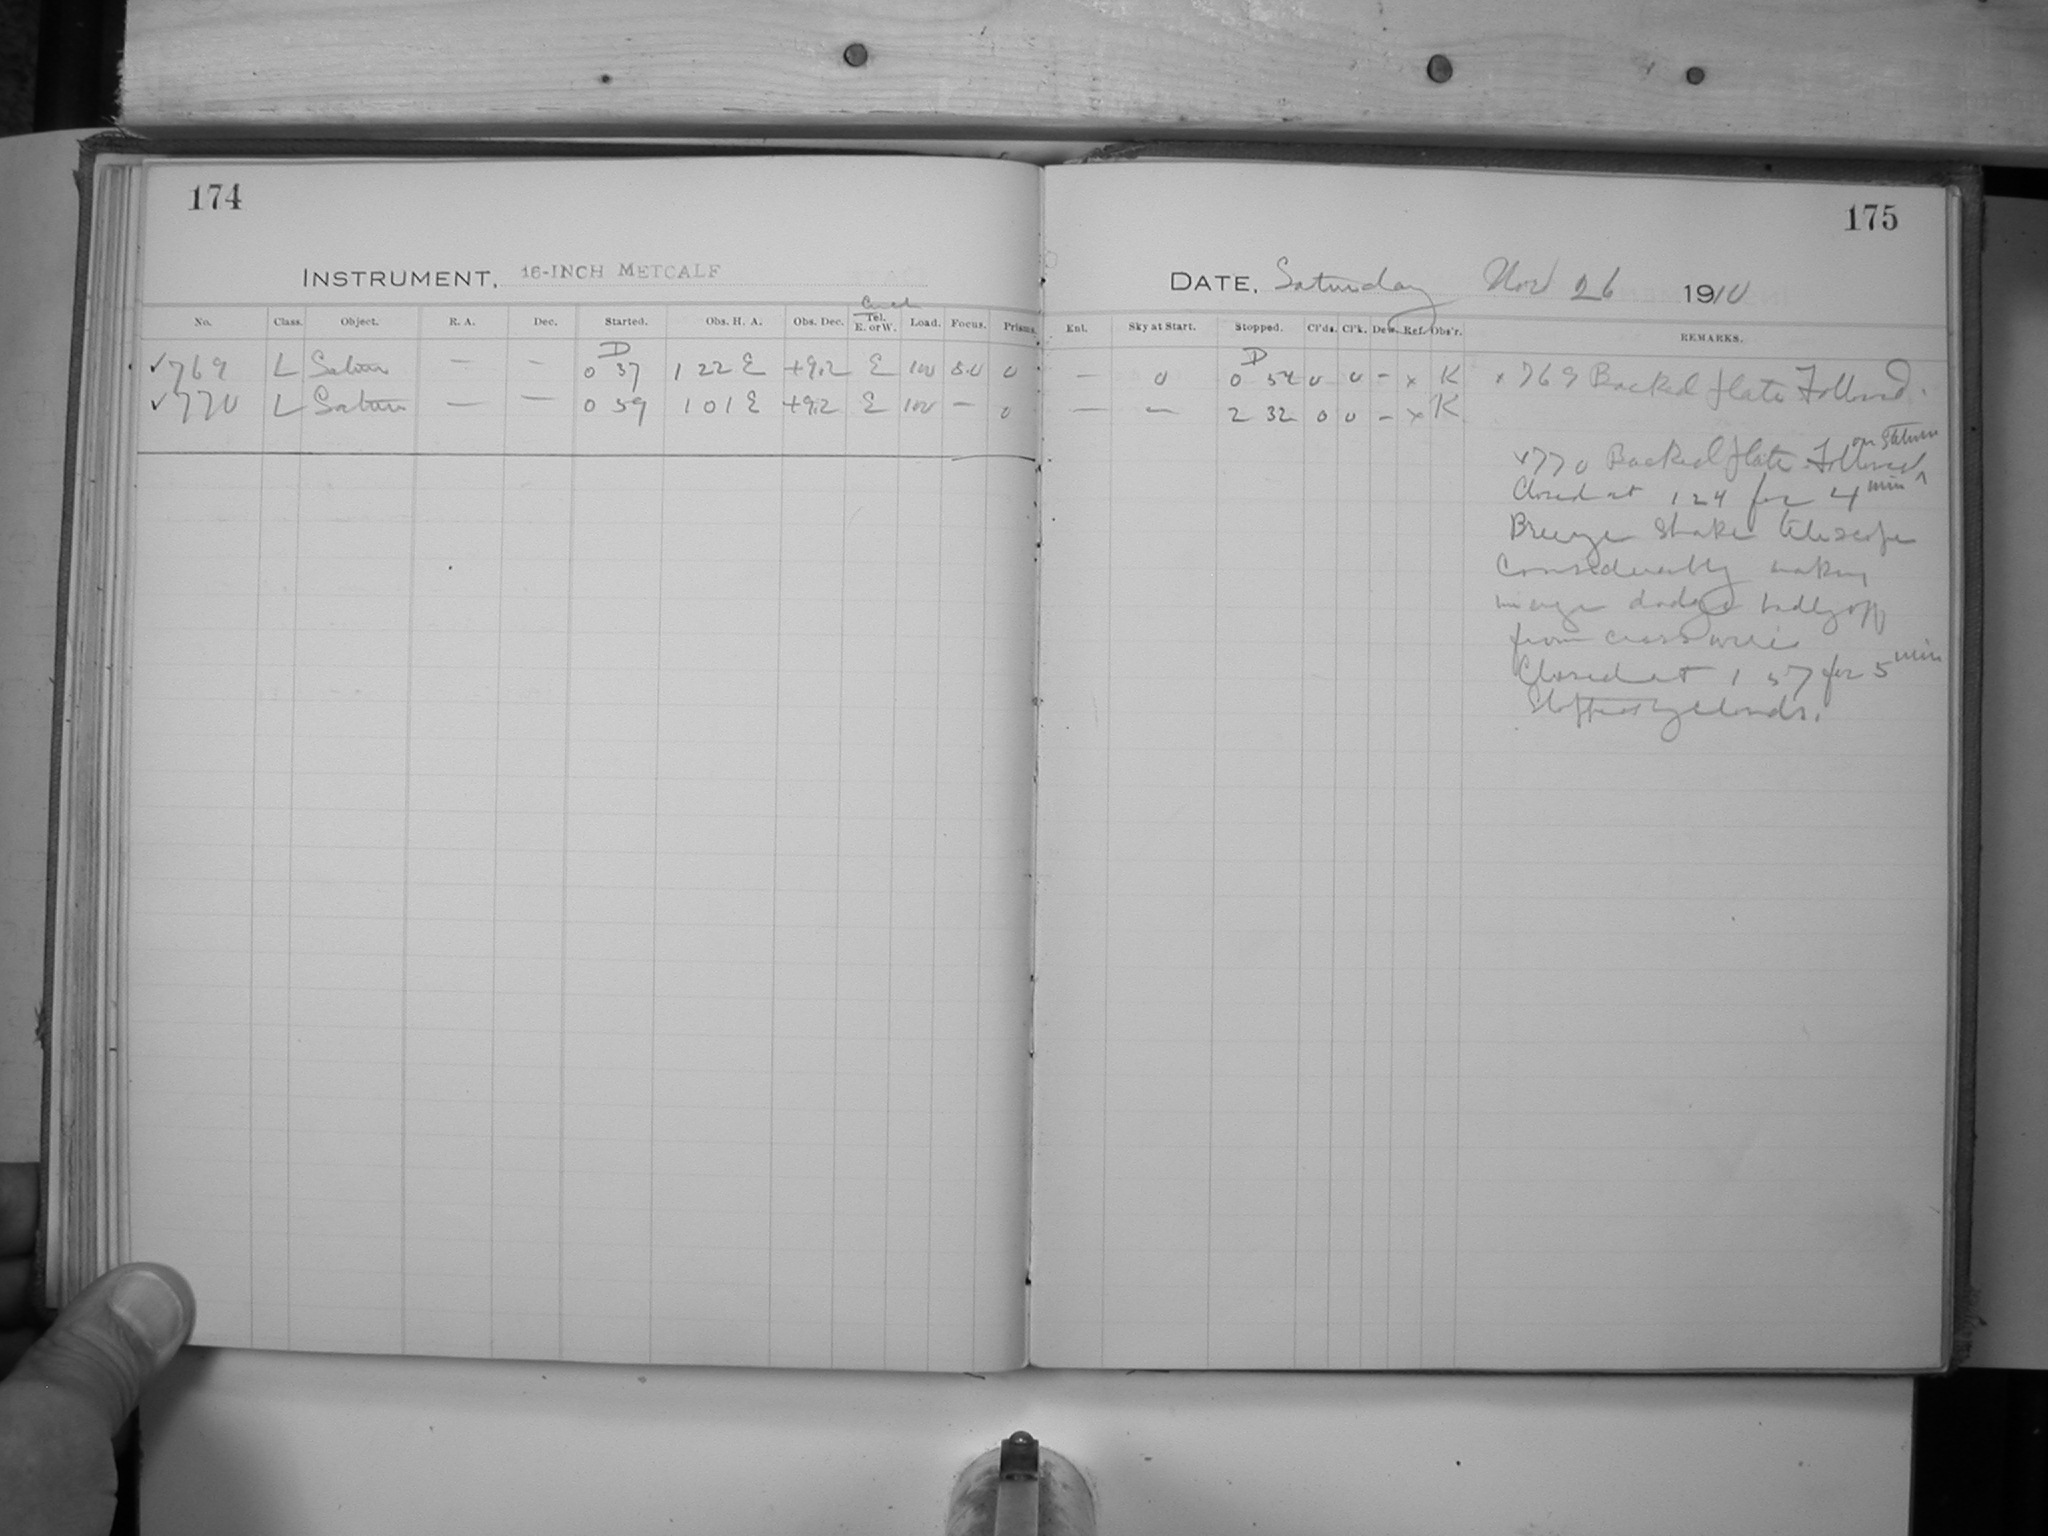 174
175
INSTRUMENT, 16-INCH METCALF
DATE, Saturday Nov 26 1910
No. Class. Object. R. A. Dec. Started. Obs. H. A. Obs. Dec. Tel. E. or W. Load. Focus. Prisms.
Enl. Sky at Start. Stopped. Cl'ds. Cl'k. Dew. Ref. Obs'r. REMARKS.
D
D
✓769 L Saturn — — 0 37 1 22 E +9.2 E 100 8.0 0
— 0 0 54 0 0 - x K x 769 Backed plate Followed.
✓770 L Saturn — — 0 59 1 01 E +9.2 E 100 — 0
— — 2 32 0 0 - x K
on Saturn
x770 Backed plate Followed ^
Closed at 1 24 for 4 min
Breeze shakes telescope
Considerably making
image dodge badly off
from cross wires
Closed at 1 57 for 5 min
Stopped by clouds.